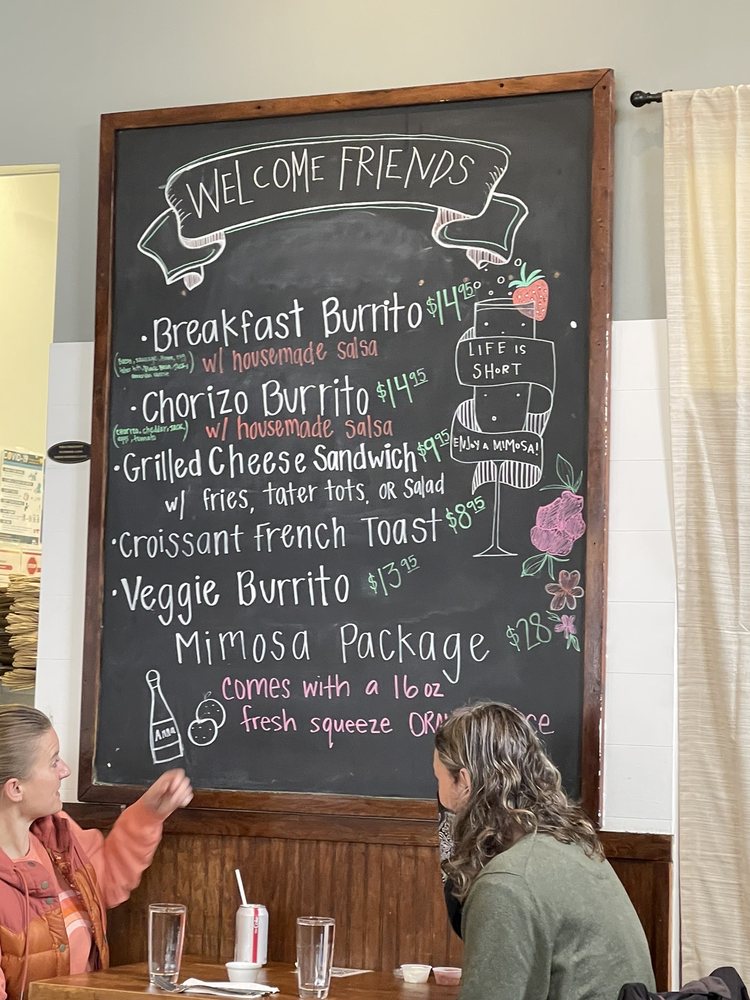 WELCOME FRIENDS
• Breakfast Burrito $14.95
w/ housemade salsa
• Chorizo Burrito $14.95
(chorizo, cheddar, jack,
egg, tomato)
w/ housemade salsa
• Grilled Cheese Sandwich $9.95
w/ fries, tater tots, OR salad
• Croissant French Toast $8.95
• Veggie Burrito $13.95
Mimosa Package $28
comes with a 16 oz
fresh squeeze
LIFE IS
SHORT
ENJOY A MIMOSA!
COVID-19